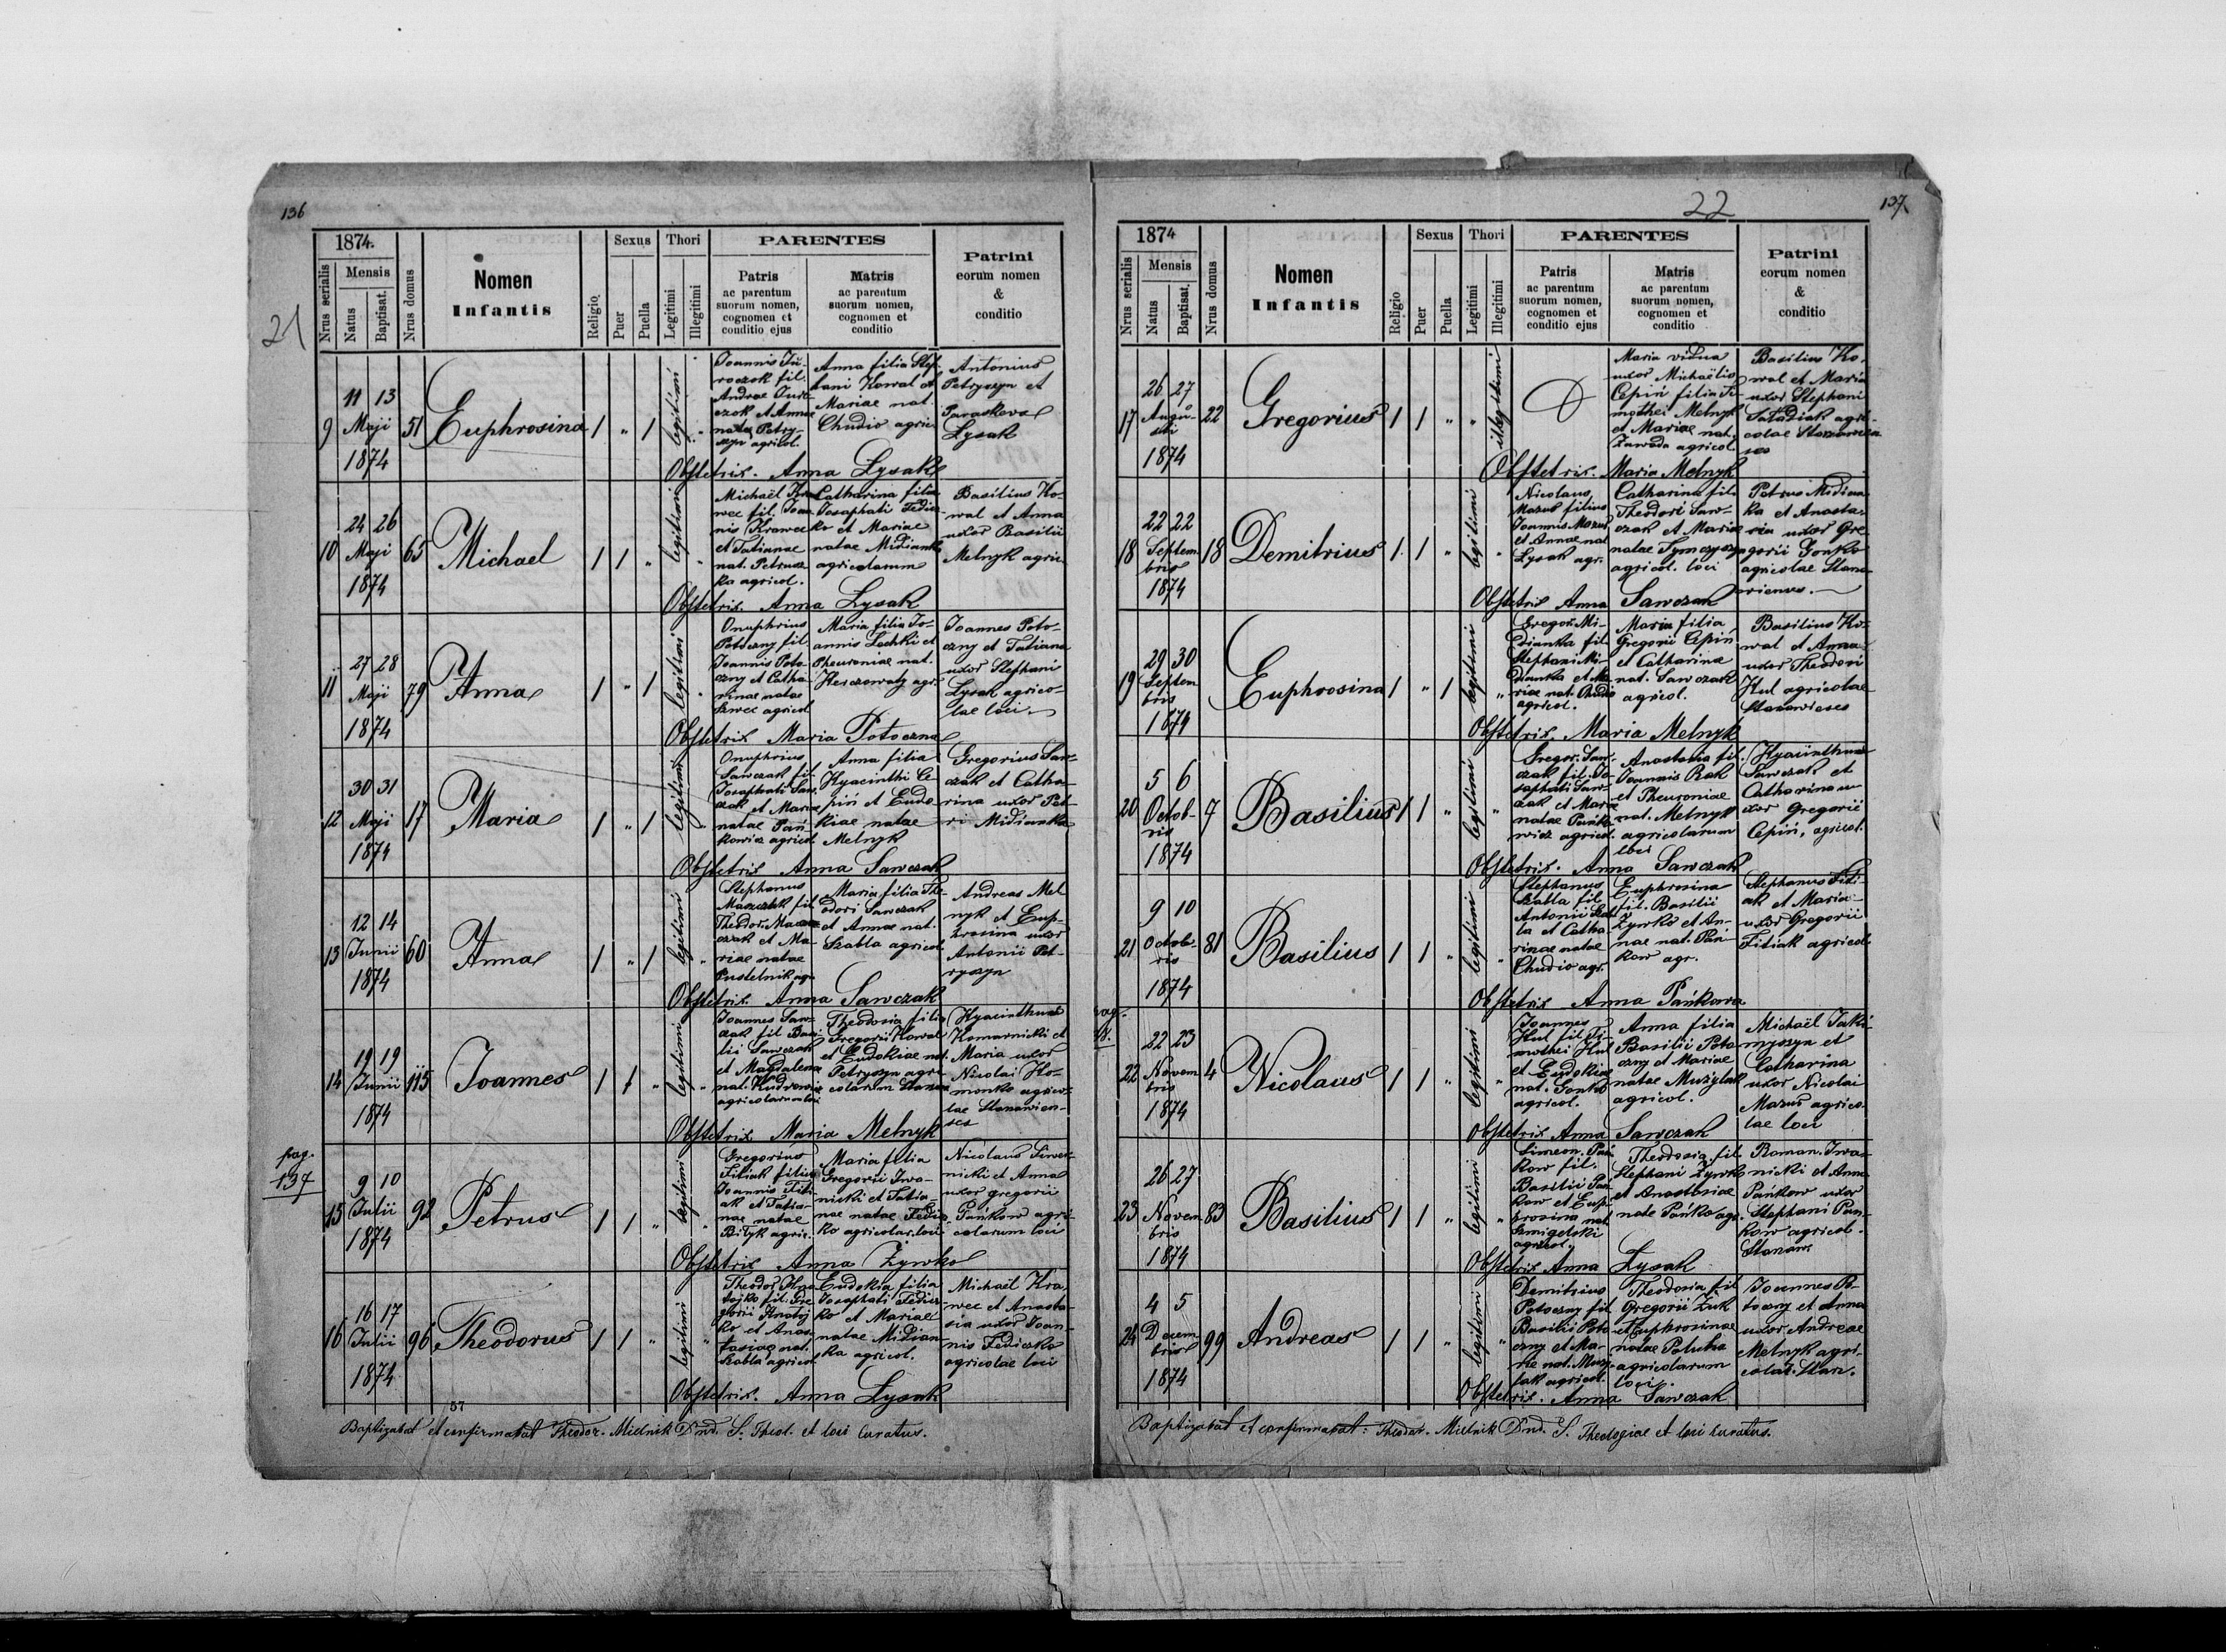 136
21
1874.
Nrus serialis
Mensis
Natus
Baptisat.
Nrus domus
Nomen
Infantis
Religio
Sexus
Puer
Puella
Thori
Legitimi
Illegitimi
PARENTES
Patris
ac parentum
suorum nomen,
cognomen et
conditio ejus
Matris
ac parentum
suorum nomen,
cognomen et
conditio
Patrini
eorum nomen
&
conditio
9
11 13
Maji
1874
51
Euphrosina
1 " 1
legitimi
Andrae
czok et Annae
natae Petry-
szyn agricol.
Anna filia Step-
hani Kowal et
Mariae nat.
Chudio agric.
Antonius
Petryszyn et
Paraskeva
Lysak
Obstetrix. Anna Lysak
10
24 26
Maji
1874
65
Michael
1 1 "
legitimi
Michaël Kra-
wec fil. Joan-
nis Krawec
et Tatianae
nat. Petrusz
ka agricol.
Catharina filia
Josaphati Fedicz-
ko et Mariae
natae Midianka
agricolarum
Basilius Ko-
wal et Anna
uxor Basilii
Melnyk agric.
Obstetrix. Anna Lysak
11
27 28
Maji
1874
79
Anna
1 " 1
legitimi
Onuphrius
Potoczny fil.
Joannis Poto-
czny et Catha-
rinae natae
Szwec agricol.
Maria filia Jo-
annis Lechki et
Pheuroniae nat.
agr.
Joannes Poto-
czny et Tatiana
uxor Stephani
Lysak agrico-
lae loci
Obstetrix Maria Potoczna
12
30 31
Maji
1874
17
Maria
1 " 1
legitimi
Onuphrius
Sawczak fil.
Josaphati Saw-
czak et Mariae
natae Pań-
kowicz agricol.
Anna filia
Hyacinthi Ce-
piń et Eudo-
kiae natae
Melnyk
Gregorius Saw-
czak et Catha-
rina uxor Pet-
ri Midianka
Obstetrix Anna Sawczak
13
12 14
Junii
1874
60
Anna
1 " 1
legitimi
Stephanus
fil.
Theodor.
czak et Ma-
riae natae
Pustelnik agr.
Maria filia The-
odori Sawczak
et Annae nat.
Szabla agricol.
Andreas Mel
nyk et Eup-
hrosina uxor
Antonii Pet-
ryszyn
Obstetrix. Anna Sawczak
14
19 19
Junii
1874
115
Joannes
1 1 "
legitimi
Joannes Saw-
czak fil. Basi-
lii Sawczak
et Magdalenae
nat.
agricolarum loci
Theodosia filia
Gregorii Kowal
et Eudokiae nat.
Petryszyn agri-
colarum
Hyacinthus
Komarnicki et
Maria uxor
Nicolai Ho-
monko agrico-
lae Stanawien-
ses
Obstetrix Maria Melnyk
pag.
137
15
9 10
Julii
1874
92
Petrus
1 1 "
legitimi
Gregorius
Fitiak filius
Joannis Fiti-
ak et Tatia-
nae natae
Bilyk agric.
Maria filia
Gregorii Iwa-
nicki et Tatia-
nae natae Fedicz-
ko agricolar. loci
Nicolaus
et Anna
uxor gregorii
Pańkow agri-
colarum loci
Obstetrix Anna Żywko
16
16 17
Julii
1874
96
Theodorus
1 1 "
legitimi
Theodor
fil. Gre-
gorii
ko et Anas-
tasiae nat.
Szabla agricol.
Eudokia filia
Josaphati Fedicz-
ko et Mariae
natae Midian-
ka agricol.
Michaël Kra-
wec et Anasta-
sia uxor Joan-
nis Fediczko
agricolae loci
Obstetrix. Anna Lysak
57
Baptizabat et confirmabat Theodor. Mielnik Dnd. S. Theol. et loci Curatus.
22
137
1874
Nrus serialis
Mensis
Natus
Baptisat.
Nrus domus
Nomen
Infantis
Religio
Sexus
Puer
Puella
Thori
Legitimi
Illegitimi
PARENTES
Patris
ac parentum
suorum nomen,
cognomen et
conditio ejus
Matris
ac parentum
suorum nomen,
cognomen et
conditio
Patrini
eorum nomen
&
conditio
17
26 27
Augu-
sti
1874
22
Gregorius
1 1 "
illegitimi
Maria vidua
uxor Michaëlis
Cepiń filia Ti-
mothei Melnyk
et Mariae nat.
Zawada agricol.
Basilius Ko-
wal et Maria
uxor Stephani
agri-
colae
ses
Obstetrix. Maria Melnyk
18
22 22
Septem
bris
1874
18
Demitrius
1 1 "
legitimi
Nicolaus
Mazur filius
Joannis Mazur
et Annae nat.
Lysak agr.
Catharina fil.
Theodori Saw-
czak et Mariae
natae
agricol. loci
Petrus Midian-
ka et Anasta-
sia uxor Gre-
gorii Gonko
agricolae Stana
wienses.
Obstetrix Anna Sawczak
19
29 30
Septem
bris
1874
Euphrosina
1 " 1
legitimi
Gregor. Mi-
dianka fil.
Stephani Mi-
dianka et Ma-
riae nat. Chudio
agricol.
Maria filia
Gregorii Cepiń
et Catharina
nat. Sawczak
agricol.
Basilius Ko-
wal et Anna
uxor Theodori
Kul agricolae
Obstetrix. Maria Melnyk
20
5 6
Octob-
ris
1874
7
Basilius
1 1 "
legitimi
Gregor. Saw-
czak fil. Jo-
saphati Saw-
czak et Mariae
natae Pańko-
wicz agricol.
Anastasia fil.
Joannis Rak
et Pheuroniae
nat. Melnyk
agricolarum
loci
Hyacinthus
Sawczak et
Catharina u-
xor Gregorii
Cepiń, agricol.
Obstetrix. Anna Sawczak
21
9 10
Octob-
ris
1874
81
Basilius
1 1 "
legitimi
Stephanus
Szabla fil.
Antonii Szab-
la et Catha-
rinae natae
Chudio agr.
Euphrosina
fil. Basilii
Żywko et An-
nae nat. Pań-
kow agr.
Stephanus Fiti-
ak et Maria
uxor Gregorii
Fitiak agricol.
Obstetrix Anna Pańkowa
22
22 23
Novem
bris
1874
4
Nicolaus
1 1 "
legitimi
Joannes
Kul fil. Ti-
mothei Kul
et Eudokiae
nat. Gonko
agricol.
Anna filia
Basilii Poto
czny et Mariae
natae Mużylak
agricol.
Michaël Jaki-
myszyn et
Catharina
uxor Nicolai
Mazur agrico-
lae loci
Obstetrix Anna Sawczak
23
26 27
Novem
bris
1874
83
Basilius
1 1 "
legitimi
Simeon. Pań
kow fil.
Basilii Pań
kow et Eup-
hrosina nat.
Szmigelski
agricol.
Theodosia fil.
Stephani Żywko
et Anastasiae
natae Pańko agr.
Roman. Iwa-
nicki et Anna
Pańkow uxor
Stephani Pań-
kow agricol.
Stanaw
Obstetrix Anna Lysak
24
4 5
Decem
bris
1874
99
Andreas
1 1 "
legitimi
Demitrius
Potoczny fil.
Basilii Poto
czny et Ma-
riae nat. Muzy-
lak agricol.
Theodosia fil.
Gregorii Żuk
et Euphrosinae
natae
agricolarum
loci.
Joannes Po-
toczny et Anna
uxor Andreae
Melnyk agri-
colar. Stan.
Obstetrix. Anna Sawczak
Baptizabat et confirmabat: Theodor. Mielnik Dnd. S. Theologiae et loci curatus.